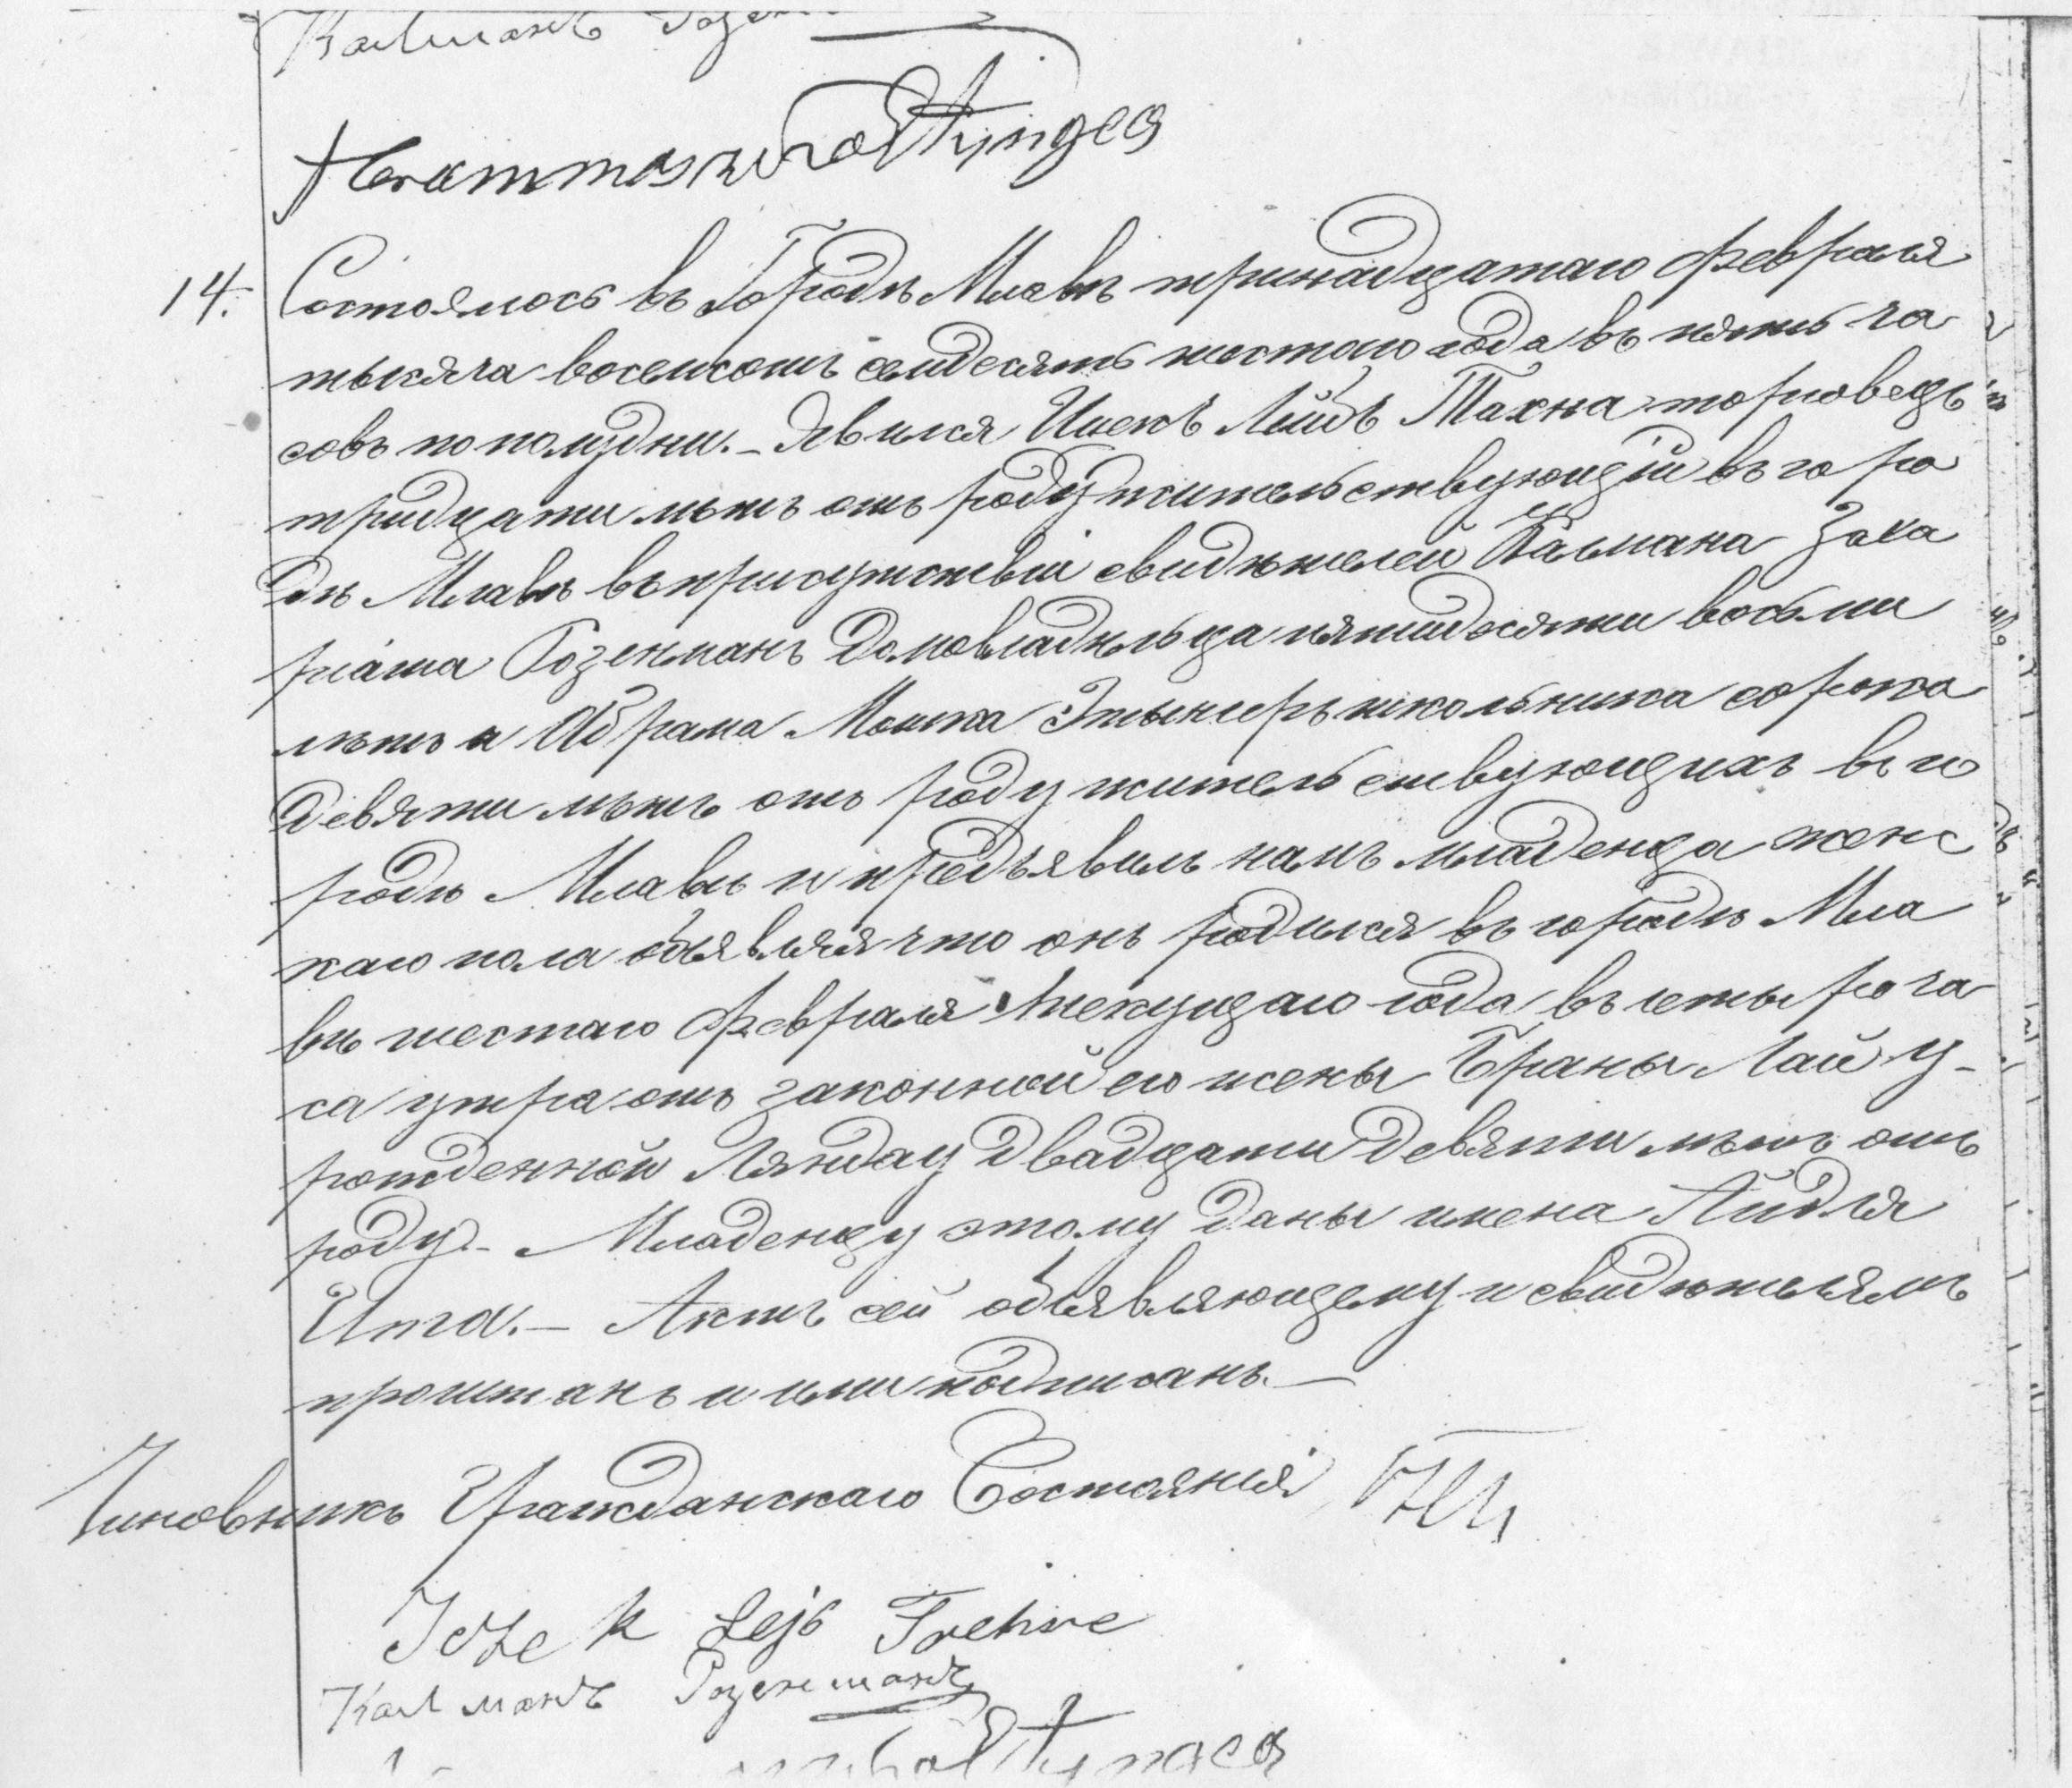 Калманъ Розен
14. Состоялось въ Городѣ Млавѣ тринадцатаго Февраля
тысяча восемсотъ семдесятъ шестаго года въ пять ча
совъ пополудни. - Явился Ицекъ Лейбъ Тахна торговецъ
тридцати лѣтъ отъ роду жительствующій въ горо
дѣ Млавѣ въ присутствіи свидѣтелей Кальмана Заха
ріаша Розенманъ домовладѣльца пятидесяти восьми
лѣтъ и Абрама Мошка Этынгеръ школьника сорока
девяти лѣтъ отъ роду жительствующихъ въ го
родѣ Млавѣ и предъявилъ намъ младенца женс
каго пола объявляя что онъ родился въ городѣ Мла
вѣ шестаго Февраля текущаго года въ четыре ча
са утра отъ законной его жены Браны Лаи у-
рожденной Ляндау двадцати девяти лѣтъ отъ
роду. - Младенцу этому даны имена Айдля
Ита. - Актъ сей объявляющему и свидѣтелямъ
прочитанъ и ими подписанъ. -
Чиновникъ Гражданскаго Состоянія
Icek Lejb Tachne
Калманъ Розенманъ